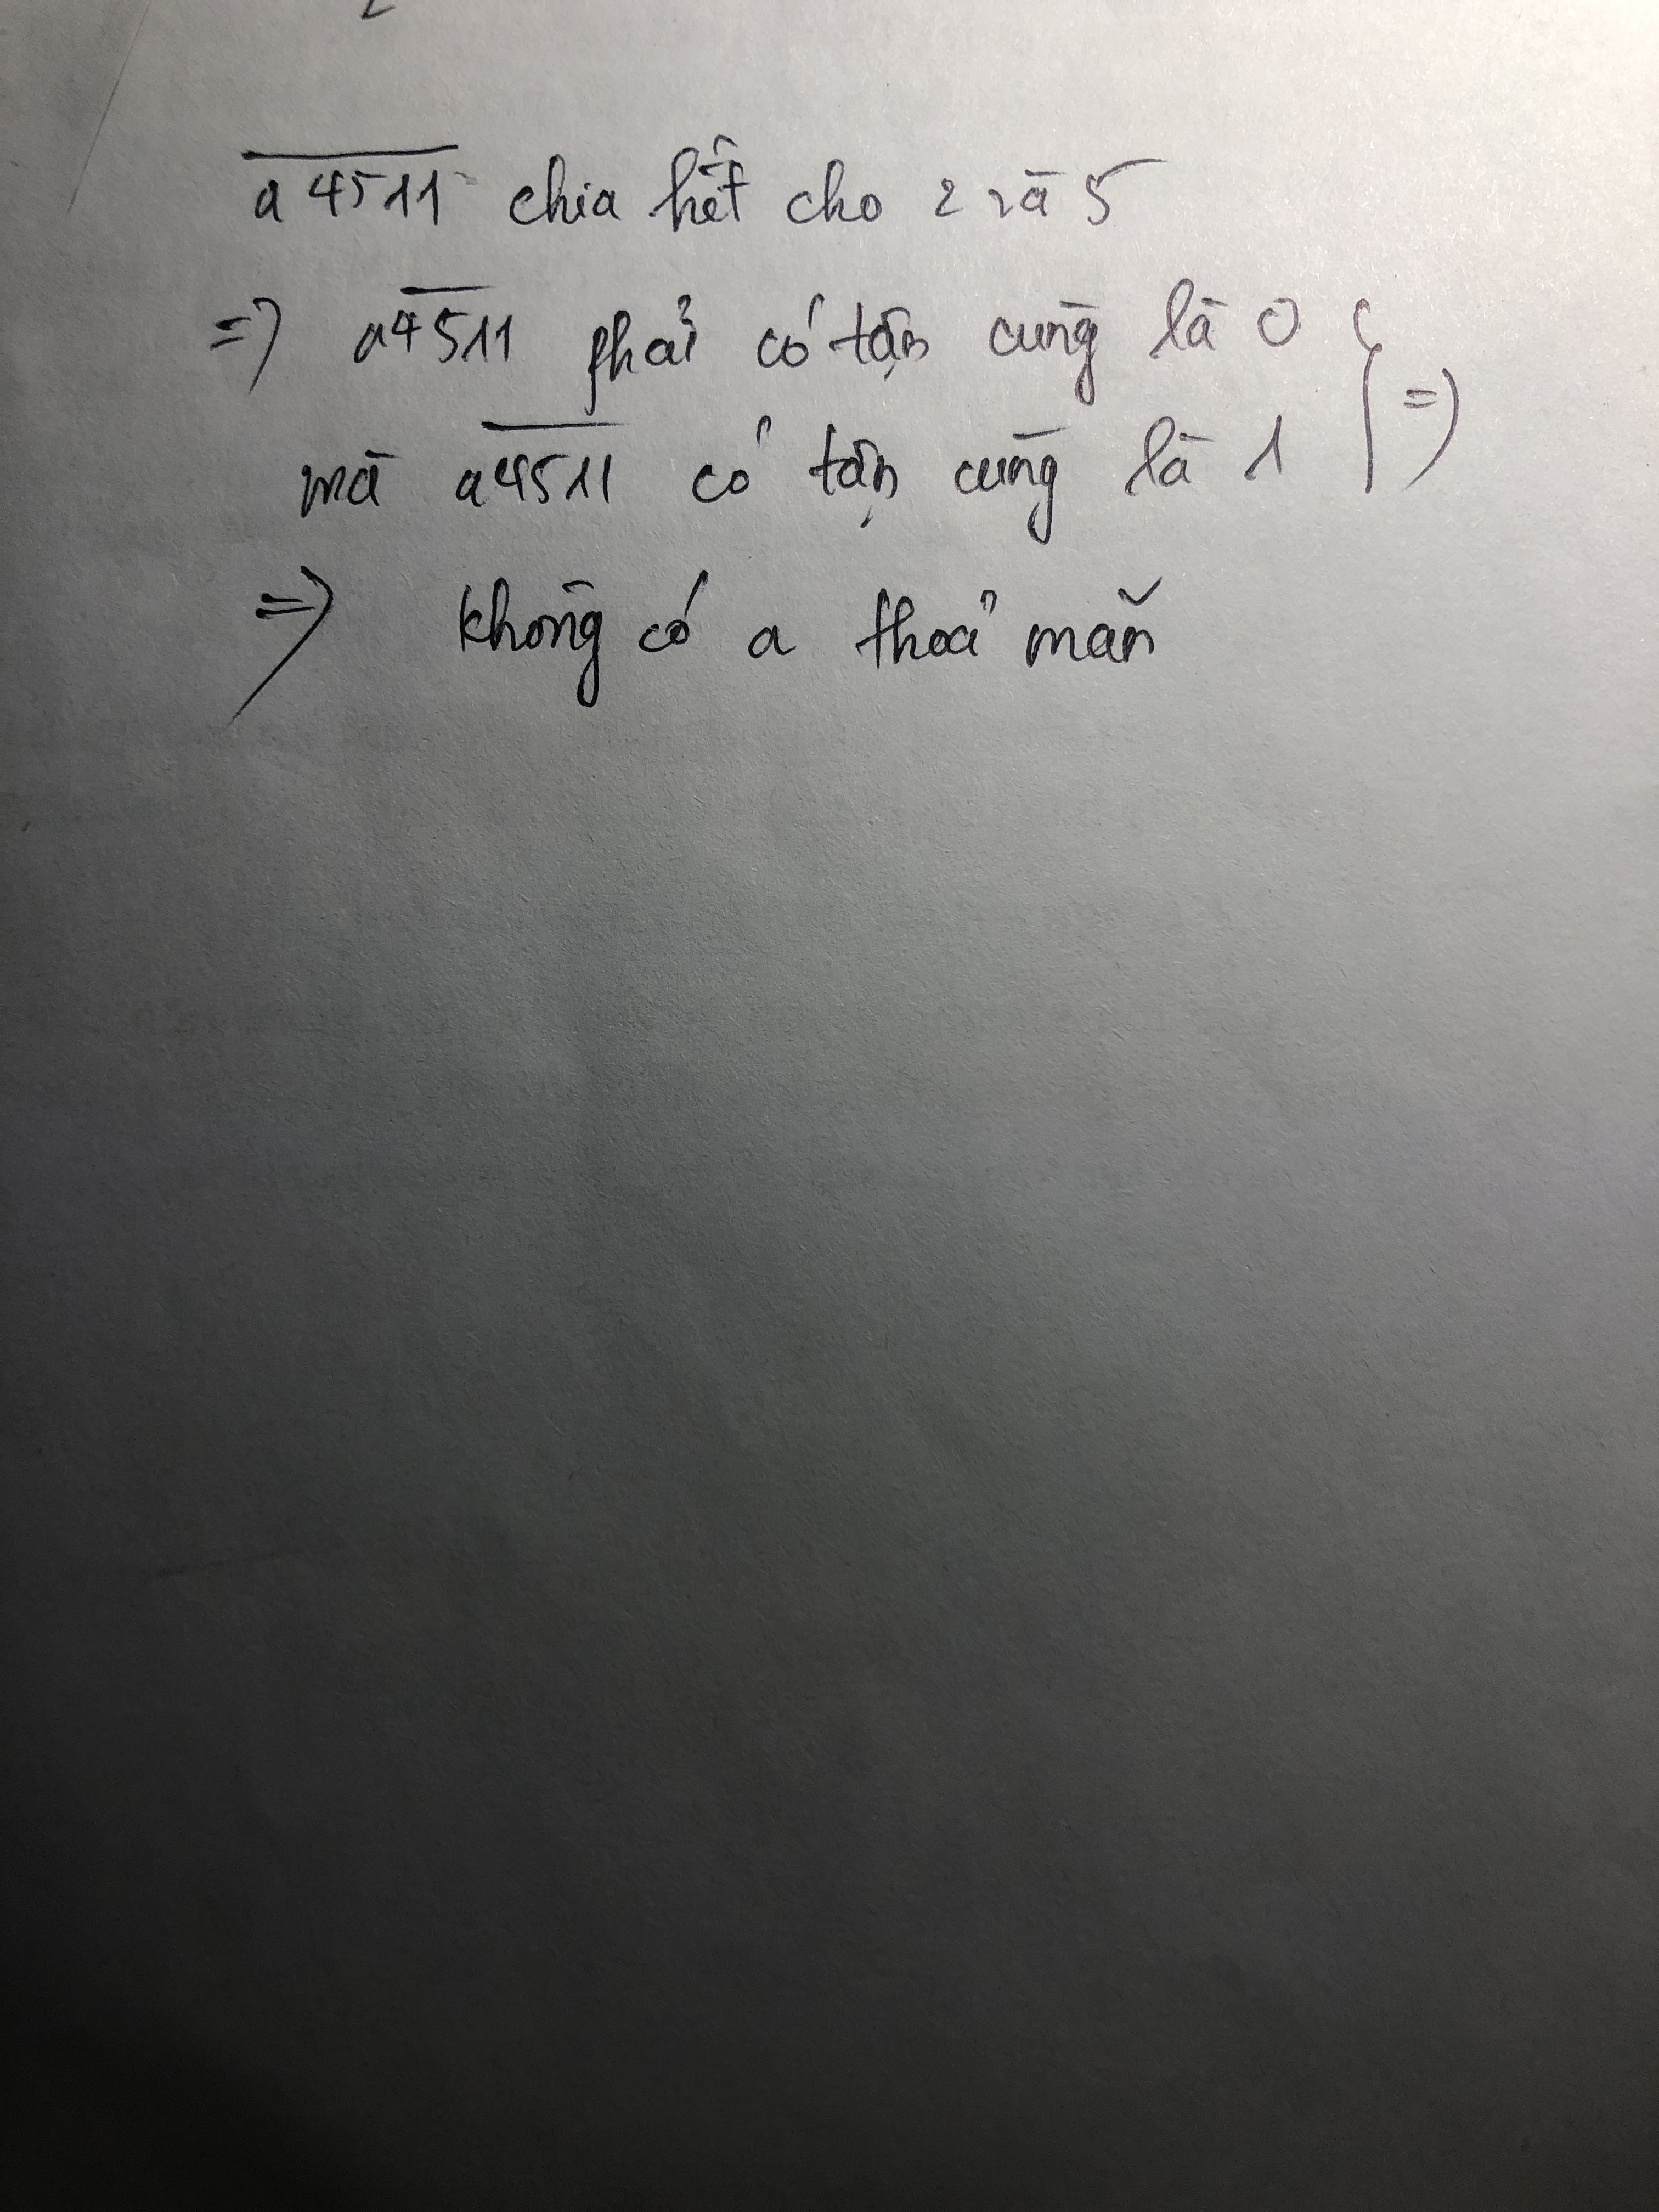 a4511 chia hết cho 2 và 5
=) a4511 phải có tận cùng là 0
mà a4511 có tận cùng là 1 =)
=) không có a thoả mãn